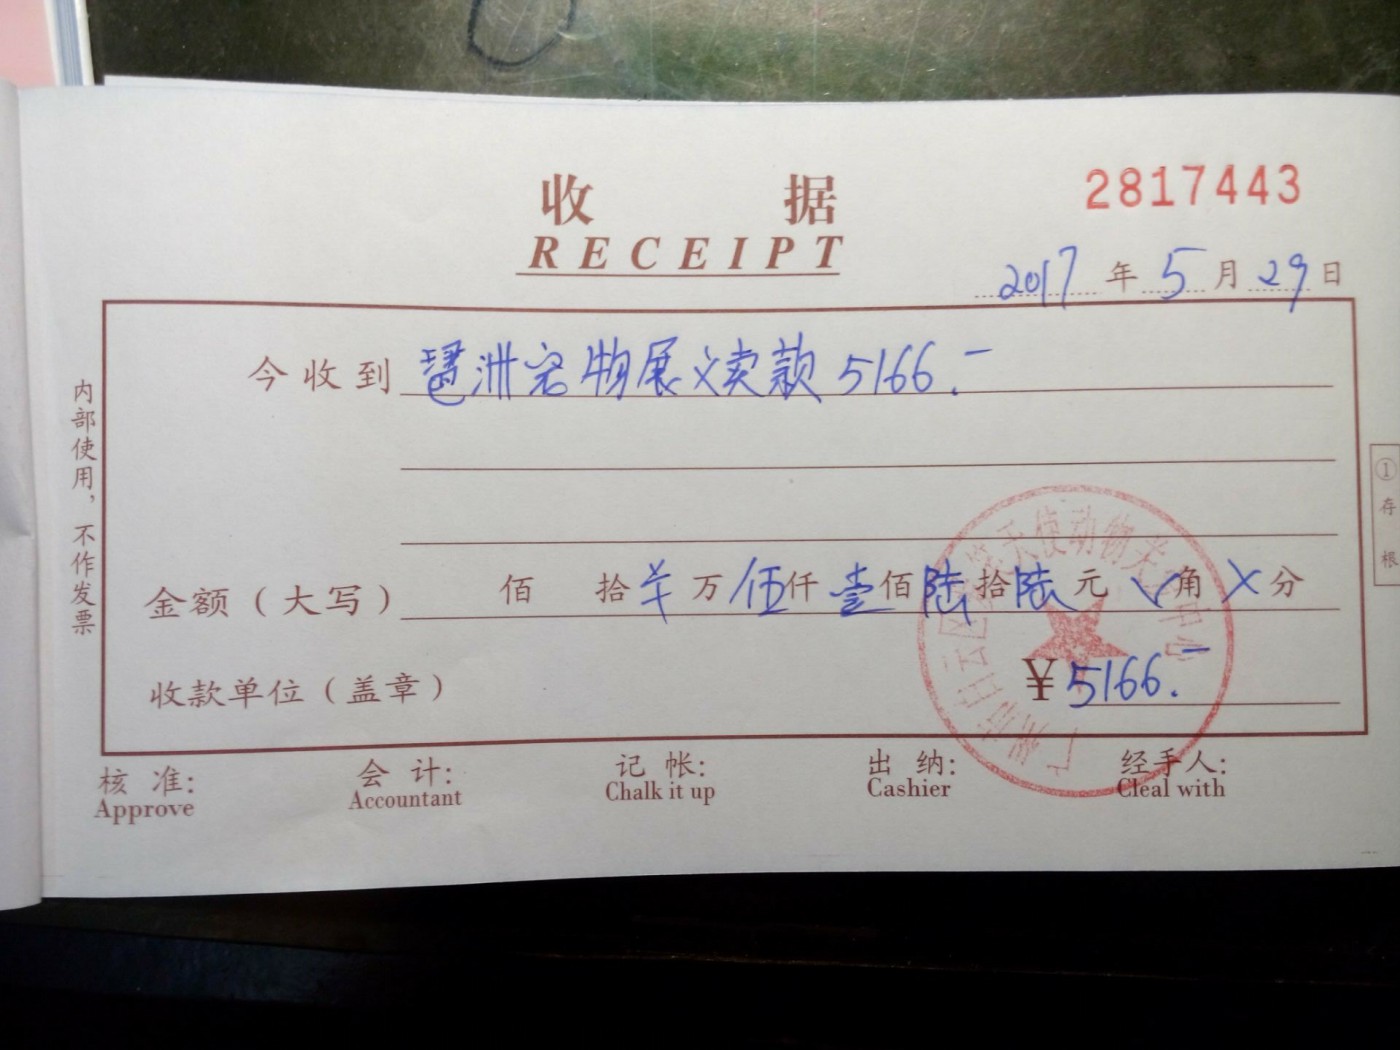 收 据
RECEIPT
2817443
2017 年 5 月 29 日
今收到 琶洲宠物展义卖款 5166.-
金额（大写） 佰 拾 万 伍仟 壹佰 陆拾 陆元 角 X 分
收款单位（盖章） ¥5166.-
核 准: 会 计: 记 帐: 出 纳: 经手人:
Approve Accountant Chalk it up Cashier Cleal with
内部使用，不作发票
① 存 根
天使动物关 中心